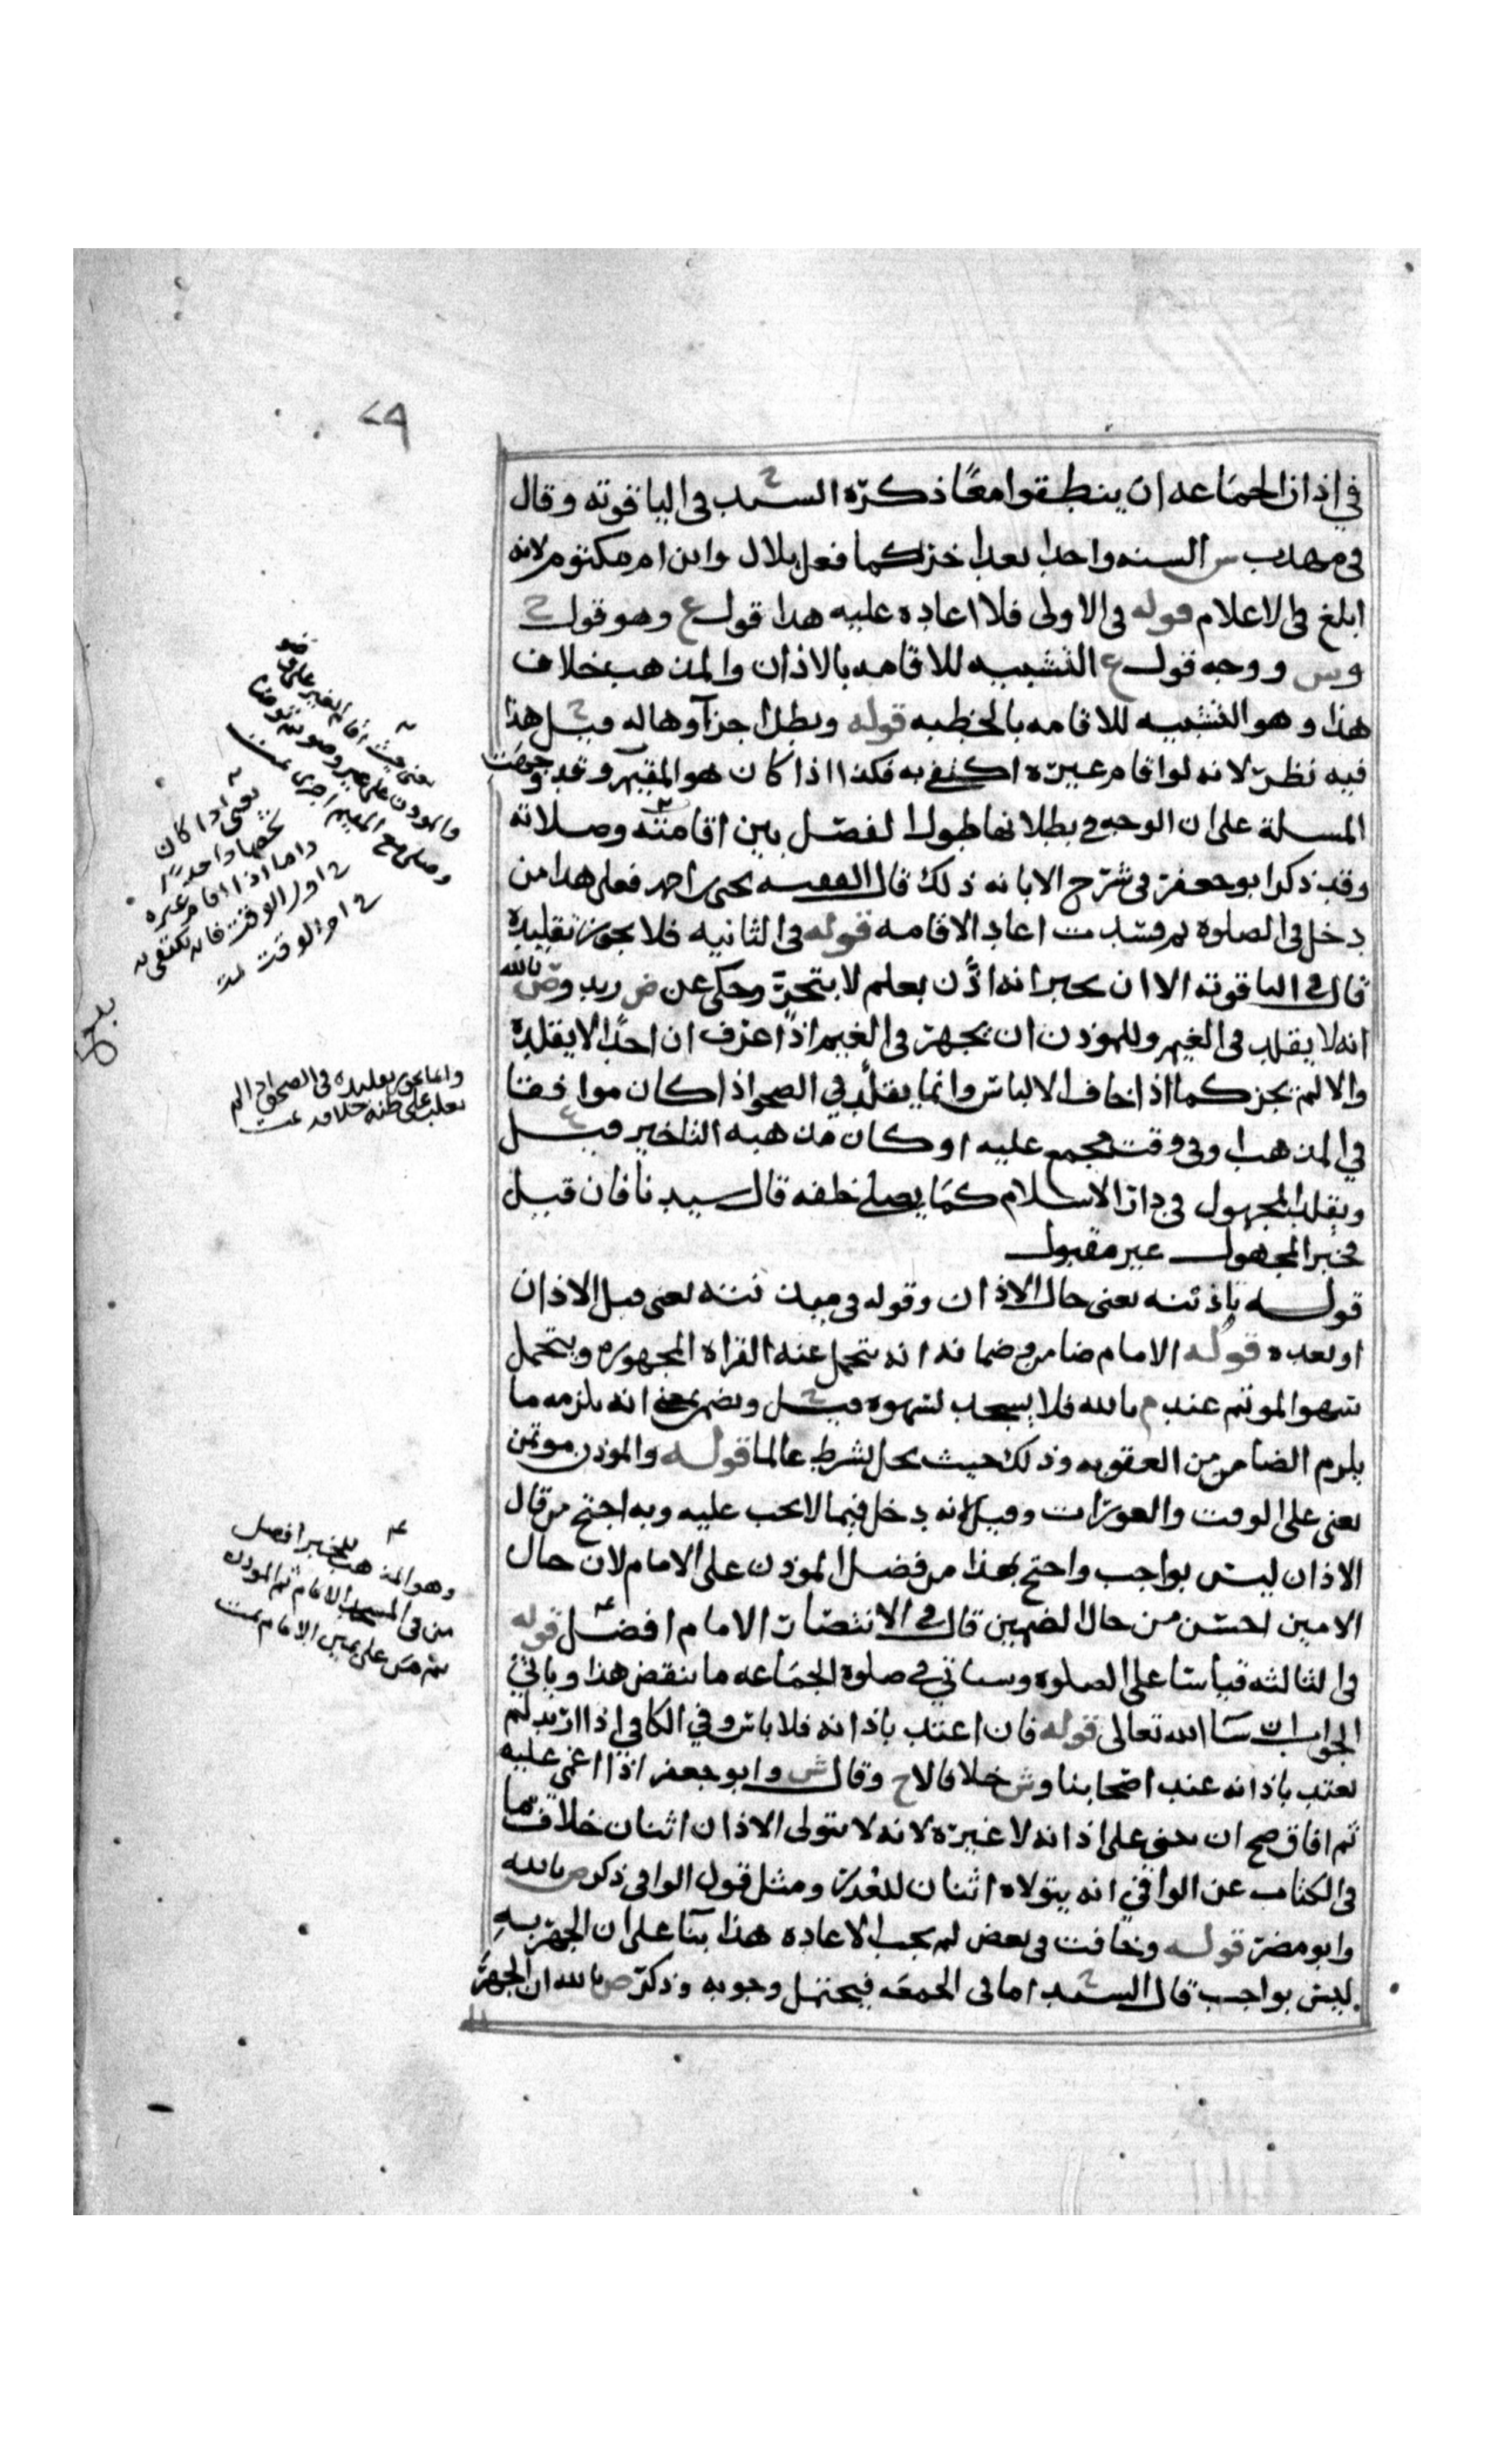 ٢٩
في اذان الجماعه ان ينطقوا معًا ذكره السيد ح في الياقوته وقال
في مهذب س السنه واحدا بعد اخر كما فعل بلال وابن ام مكتوم لانه
ابلغ في الاعلام قوله في الاولى فلا اعاده عليه هذا قول ع وهو قول ح
وس ووجه قول ع التشبيه للاقامه بالاذان والمذهب خلاف
هذا وهو التشبيه للاقامه بالخطبه قوله وبطل اجزآوها له قيل ح هذا
فيه نظر لانه لو اقام غيره اكتفي به فكذا اذا كان هو المقيم وقد
المسلة على ان الوجه في بطلانها طول الفصل بين اقامته وصلاته
وقد ذكر ابو جعفر في شرح الابانه ذلك قال الفقيه يحيى احمد فعلى هذا من
دخل في الصلوة ثم فسدت اعاد الاقامه قوله في الثانيه فلا يجوز تقليده
قال في الياقوته الا ان يخبر انه اذّن بعلم لا بتحرّ وحكي عن ض زيد وص بالله
انه لا يقلد في الغيم وللموذن ان يجهر في الغيم اذا عرف ان احدًا لا يقلده
والا لم يجز كما اذا خاف الالباس وانما يقلد في الصحو اذا كان موافقا
في المذهب او في وقت مجمع عليه او كان مذهبه التاخير قيل ع
ويقلد المجهول في دار الاسلام كما يصلي خلفه قال سيدنا فان قيل
فخبر المجهول غير مقبول
قوله باذنه يعنى حال الاذان وقوله في يعنى قبل الاذان
او بعده قوله الامام ضامن وضمانه انه يتحمل عنه القراه المجهوره ويتحمل
سهو الموتم عند م بالله فلا يسجد لسهوه قيل ح انه يلزمه ما
يلزم الضامن من العقوبه وذلك حيث يخل بشرط عالما قوله والموذن موتمن
يعنى على الوقت والعورات وقيل انه دخل فيما لا يجب عليه وبه احتج من قال
الاذان ليس بواجب واحتج بهذا من فضل الموذن على الامام لان حال
الامين احسن من حال الضمين قال في الانتصار الامام افضل قوله
في الثالثه قياسا على الصلوه وسياتي في صلوة الجماعه ما ينقض هذا وياتي
الجواب ان شا الله تعالى قوله فان اعتد باذانه فلا باس وفي الكافي اذا ارتد لم
يعتد باذانه عند اصحابنا وش خلافا لاح وقال ش وابو جعفر اذا اغمي عليه
ثم افاق صح ان يبني على اذانه لا غيره لانه لا يتولى الاذان اثنان خلاف ما
في الكتاب عن الوافي انه يتولاه اثنان للعذر ومثل قول الوافي ذكر ص بالله
وابو مضر قوله وخافت في بعض لم يجب الاعاده هذا بنآ على ان الجهر به
ليس بواجب قال السيد ح اما في الجمعه فيحتمل وجوبه وذكر ص بالله ان الجهر
يعني حيث اقام الغير على
والموذن على غير وضو ثم توضا
وصلى مع المقيم اجزى تمت
يعني اذا كان
واما اذا اقام غيره
في اول الوقت فانه يكتفى به
في اخر الوقت تمت
وانما يجوز تقليده في الصحو اذا لم
يغلب على ظنه خلافه تمت
وهو المذهب للخبر افضل
من في المسجد الامام ثم الموذن
ثم من على يمين الامام تمت